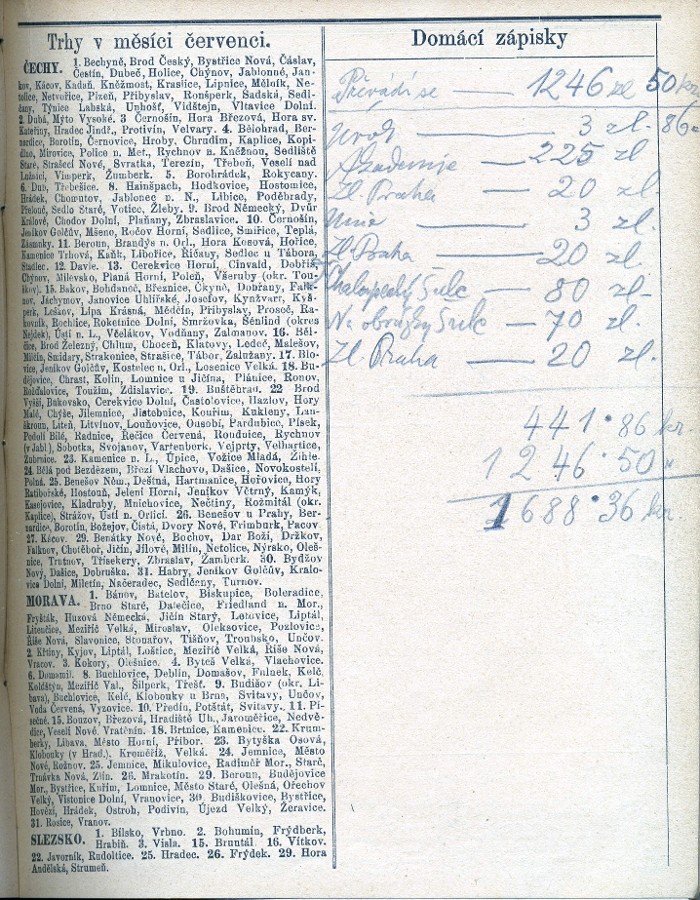 Trhy v měsíci červenci.
ČECHY. 1. Bechyně, Brod Český, Bystřice Nová, Čáslav,
Čestín, Dubeč, Holice, Chýnov, Jablonné, Jan-
kov, Kácov, Kadaň, Kněžmost, Kraslice, Lipnice, Mělník, Ne-
tolice, Netvořice, Plzeň, Přibyslav, Ronšperk, Sadská, Sedl-
čany, Týnice Labská, Unhošť, Vidštejn, Vltavice Dolní.
2. Dubá, Mýto Vysoké. 3 Černošín, Hora Březová, Hora sv.
Kateřiny, Hradec Jindř., Protivín, Velvary. 4. Bělohrad, Ber-
nardice, Borotín, Černovice, Hroby, Chrudim, Kaplice, Kopi-
dlno, Mirovice, Police n. Met., Rychnov n. Kněžnou, Sedliště
Staré, Strašecí Nové, Svratka, Terezín, Třeboň, Veselí nad
Lužnicí, Vimperk, Žumberk. 5. Borohrádek, Rokycany.
6. Dub, Třebešice. 8. Hainšpach, Hodkovice, Hostomice,
Hrádek, Chomutov, Jablonec n. N., Libice, Poděbrady,
Přelouč, Sedlo Staré, Votice, Žleby. 9. Brod Německý, Dvůr
Králové, Chodov Dolní, Plaňany, Zbraslavice. 10. Černošín,
Jeníkov Golčův, Mšeno, Ročov Horní, Sedlice, Smiřice, Teplá,
Zásmuky. 11. Beroun, Brandýs n. Orl., Hora Kosová, Hořice,
Kamenice Trhová, Kaňk, Libořice, Říčany, Sedlec u Tábora,
Stadlec. 12. Davle. 13. Cerekvice Horní, Cinvald, Dobříš,
Chýnov, Milevsko, Planá Horní, Poleň, Všeruby (okr. Tou-
škov). 15. Bakov, Bohdaneč, Březnice, Čkyně, Dobřany, Falk-
nov, Jáchymov, Janovice Uhlířské, Josefov, Kynžvart, Kyš-
perk, Leškov, Lípa Krásná, Mědčín, Přibyslav, Proseč, Ra-
kovník, Rochlice, Rokytnice Dolní, Smržovka, Šenlind (okres
Nejdek), Ústí n. L., Včelákov, Vodňany, Zalmanov. 16. Běl-
čice, Brod Železný, Chlum, Choceň, Klatovy, Ledeč, Malešov,
Mičín, Smidary, Strakonice, Strašice, Tábor, Žalužany. 17. Blo-
vice, Jeníkov Golčův, Kostelec n. Orl., Losenice Velká. 18. Bu-
dějovice, Chrast, Kolín, Lomnice u Jičína, Plánice, Ronov,
Rožďalovice, Toužim, Zdislavice. 19. Buštěhrad. 22 Brod
Vyšší, Bukovsko, Cerekvice Dolní, Častolovice, Hazlov, Hory
Malé, Chýše, Jilemnice, Jistebnice, Kouřim, Kukleny, Lan-
škroun, Liteň, Litvínov, Louňovice, Ousobí, Pardubice, Písek,
Podolí Bílé, Radnice, Řečice Červená, Roudnice, Rychnov
(v Jabl.), Sobotka, Svojanov, Vartenberk, Vejprty, Velhartice,
Zubrnice. 23. Kamenice n. L., Úpice, Vožice Mladá, Žihle.
24. Bělá pod Bezdězem, Březí Vlachovo, Dašice, Novokostelí,
Polná. 25. Benešov Něm., Deštná, Hartmanice, Hořovice, Hory
Ratibořské, Hostouň, Jelení Horní, Jeníkov Větrný, Kamýk,
Kasejovice, Kladruby, Mnichovice, Nečtiny, Rožmitál (okr.
Kaplice), Strážov, Ústí n. Orlicí. 26. Benešov u Prahy, Ber-
nardice, Borotín, Božejov, Čistá, Dvory Nové, Frimburk, Pacov.
27. Kácov. 29. Benátky Nové, Bochov, Dar Boží, Držkov,
Falknov, Chotěboř, Jičín, Jílové, Milín, Netolice, Nýrsko, Oleš-
nice, Trutnov, Třísekery, Zbraslav, Žamberk. 30. Bydžov
Nový, Dašice, Dobruška. 31. Habry, Jeníkov Golčův, Kralo-
vice Dolní, Miletín, Načeradec, Sedlčany, Turnov.
MORAVA. 1. Bánov, Batelov, Biskupice, Boleradice,
Brno Staré, Dalečice, Friedland n. Mor.,
Fryšták, Huzová Německá, Jičín Starý, Letovice, Liptál,
Litenčice, Meziříč Velká, Miroslav, Oleksovice, Pozlovice,
Říše Nová, Slavonice, Stonařov, Tišňov, Troubsko, Unčov.
2. Křtiny, Kyjov, Liptál, Loštice, Meziříč Velká, Říše Nová,
Vracov. 3. Kokory, Olešnice. 4. Byteš Velká, Vlachovice.
6. Domamil. 8. Buchlovice, Deblín, Domašov, Fulnek, Kelč,
Koldštýn, Meziříč Val., Šilperk, Třešť. 9. Budišov (okr. Li-
bava), Buchlovice, Kelč, Klobouky u Brna, Svitavy, Unčov,
Voda Červená, Vyzovice. 10. Předín, Potštát, Svitavy. 11. Pí-
sečné. 15. Bouzov, Březová, Hradiště Uh., Jaroměřice, Nedvě-
dice, Veselí Nové, Vratěnín. 18. Brtnice, Kamenice. 22. Krum-
berky, Libava, Město Horní, Příbor. 23. Bytyška Osová,
Klobouky (v Hrad.), Kroměříž, Velká. 24. Jemnice, Město
Nové, Rožnov. 25. Jemnice, Mikulovice, Radiměř Mor., Starč,
Trnávka Nová, Zlín. 26. Mrakotín. 29. Beroun, Budějovice
Mor., Bystřice, Kuřim, Lomnice, Město Staré, Olešná, Ořechov
Velký, Vistonice Dolní, Vranovice, 30. Budiškovice, Bystřice,
Hovězí, Hrádek, Ostroh, Podivín, Újezd Velký, Žeravice.
31. Rosice, Vranov.
SLEZSKO. 1. Bílsko, Vrbno. 2. Bohumín, Frýdberk,
Hrabiň. 3. Visla. 15. Bruntál. 16. Vítkov.
22. Javorník, Rudoltice. 25. Hradec. 26. Frýdek. 29. Hora
Andělská, Strumeň.
Domácí zápisky
Převádí se — 1246 zl 50 kr
Úrok — 3 zl. 86 "
Akademie — 225 zl
Zl. Praha — 20 zl.
Unie — 3 zl.
Zl. Praha — 20 zl.
Chaloupecký Šulc — 80 zl.
Na obrázky Šulc — 70 zl.
Zl. Praha — 20 zl.
441 · 86 kr.
1246 · 50 "
1688 · 36 kr.